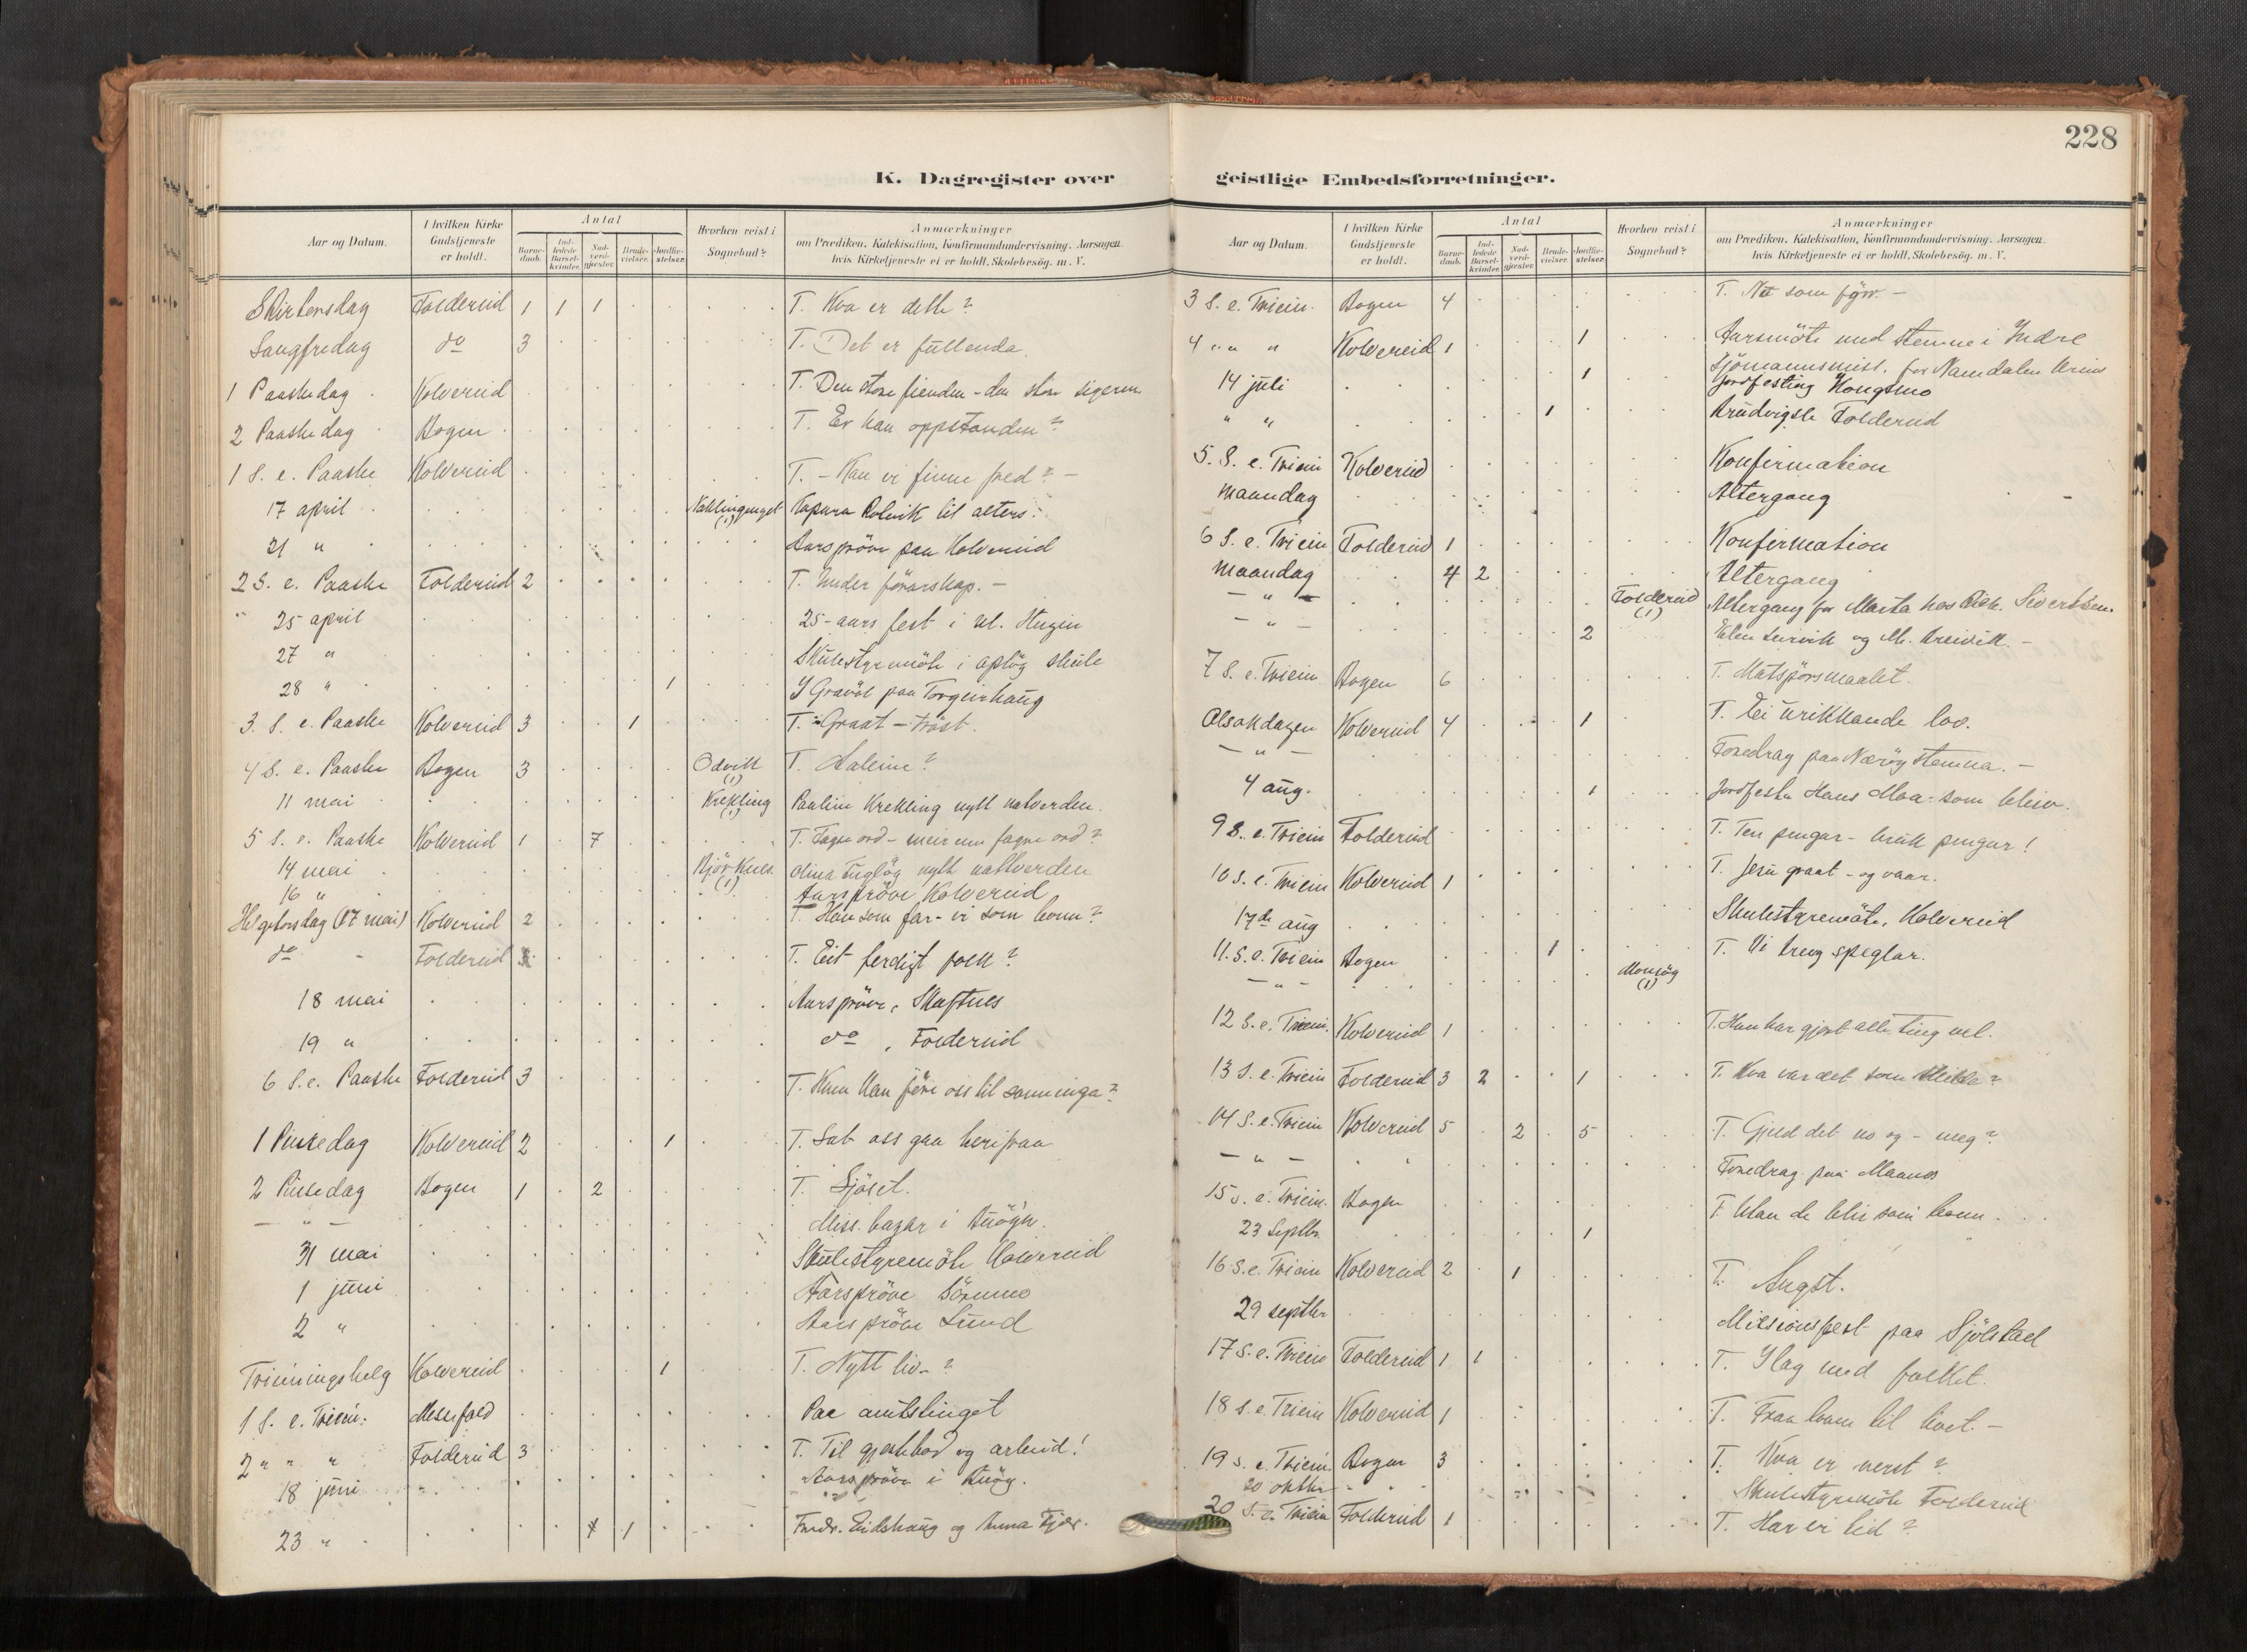 228
K. Dagregister over
Aar og Datum.
I hvilken Kirke Gudstjeneste er holdt.
Antal
Barnedaab.
Indledede Barselkvinder.
Nadverdgjester.
Brudevielser.
Jordfæstelser.
Hvorhen reist i Sognebud?
Anmærkninger
om Prædiken, Katekisation, Konfirmandundervisning. Aarsagen
hvis Kirketjeneste ei er holdt. Skolebesøg. m. V.
Skirtorsdag Foldereid 1 1 1 T. Kva er dette?
Langfredag do 3 T. Det er fullenda.
1 Paaskedag Kolvereid T. Den store fienden - den store sigeren
2 Paaskedag Bogen T. Er han oppstanden?
1 S. e. Paaske Kolvereid T. - Kan vi finne fred? -
17 april (1) til alters.
21 " Aarsprøve paa Kolvereid
2 S. e. Paaske Foldereid 2 T. Under førarskap. -
25 april 25-aars fest i ul. Hugin
27 " Skulestyremøte i Opløy skule
28 " 1 I Gravøl paa Torgeirhaug
3. S. e. Paaske Kolvereid 3 1 T. Graat - trøst.
4 S. e. Paaske Bogen 3 Odvik (1) T. Aaleine?
11 mai Krekling (1) Pauline Krekling nytt natverden.
5 S. e. Paaske Kolvereid 1 7 T. Fagre ord - meir enn fagre ord?
14 mai (1) Olina nytt nattverden
16 " Aarsprøve Kolvereid
Helgetorsdag (17 mai) Kolvereid 2 T. Han som for - vi som kom?
do - Foldereid T. Eit ferdigt folk?
18 mai Aarsprøve, Skaftnes
19 " do, Foldereid
6 S. e. Paaske Foldereid 3 T. Kven kan føre oss til sanninga?
1 Pinsedag Kolvereid 2 1 T. Lat oss gaa heripaa
2 Pinsedag Bogen 1 2 T. Ljoset.
- " - Miss. bazar i
31 mai Skulestyremøte Kolvereid
1 juni Aarsprøve
2 " Aarsprøve Lund
Triningshelg Kolvereid 1 T. Nytt liv - ?
1 S. e. Trein. Messefald Paa amtstinget
2 " " " Foldereid 3 T. Til gjestebod og arbeid!
18 juni Aarsprøve i
23 " 1 Fredr. Eidshaug og Anna Fjær.
geistlige Embedsforretninger.
Aar og Datum.
I hvilken Kirke Gudstjeneste er holdt.
Antal
Barnedaab.
Indledede Barselkvinder.
Nadverdgjester.
Brudevielser.
Jordfæstelser.
Hvorhen reist i Sognebud?
Anmærkninger
om Prædiken, Katekisation, Konfirmandundervisning. Aarsagen.
hvis Kirketjeneste ei er holdt. Skolebesøg. m. V.
3 S. e. Triein. Bogen 4 T. No som før. -
4 " " " Kolvereid 1 1 Aarsmøte med stemne i Indre
Sjømannsmisj. for Namdalen
14 juli 1 Jordfesting Kongsmo
" " 1 Brudvigsle Foldereid
5. S. e. Triein Kolvereid Konfirmation
Maandag Altergang
6 S. e. Triein Foldereid 1 Konfirmation
Maandag 4 2 Altergang
- " - Foldereid (1) Altergang for Marta hos Sivertsen.
- " - 2
7 S. e. Triein Bogen 6 T. Matspørsmaalet.
Olsokdagen Kolvereid 4 1 T. Ei urikkande lov.
- " - Foredrag paa Nærøystemna. -
4 aug. 1 Jordfesta Hans Moa
9 S. e. Triein Foldereid T. Ten pengar - bruk pengar!
10 S. e. Triein Kolvereid 1 T. Jesu graat - og vaar.
17de aug Skulestyremøte, Kolvereid
11. S. e. Triein Bogen 1 T. Vi treng speglar.
- " - (1)
12 S. e. Triein. Kolvereid 1 T. Han har gjort alle ting vel.
13 S. e. Triein Foldereid 3 2 1 T. Kva var det som skilde?
14 S. e. Triein Kolvereid 5 2 5 T. Gjeld det no og - meg?
- " - Foredrag paa
15 S. e. Triein. Bogen
23 Septbr. 1
16 S. e. Triein Kolvereid 2 1 T. Angst.
29 septbr Misionsfest paa Sjølstad
17 S. e. Triein Foldereid 1 1 T. I lag med folket.
18 S. e. Triein Kolvereid 1 T. Fraa
19 S. e. Triein. Bogen 3 T. Kva er verst?
20 oktbr Skulestyremøte Foldereid
20 S. e. Triein Foldereid 1 T. Har vi tid?